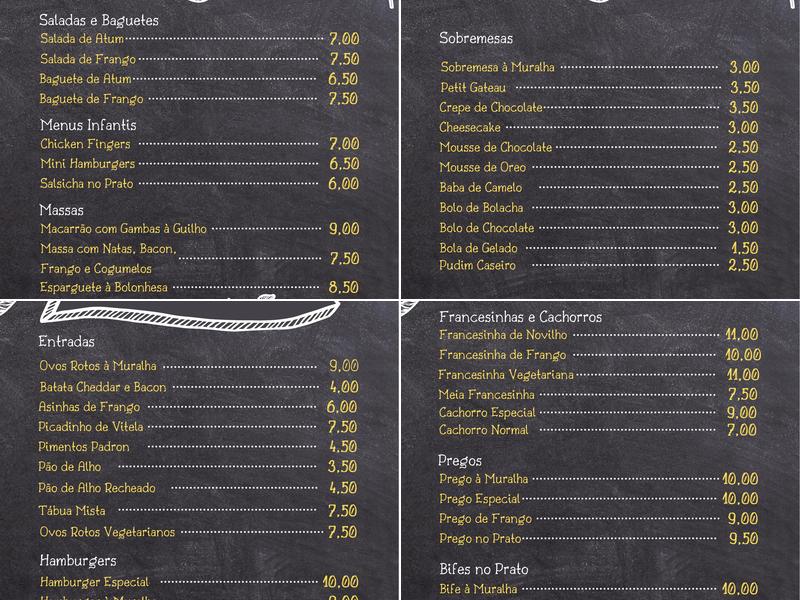 Saladas e Baguetes
Salada de Atum 7,00
Salada de Frango 7,50
Baguete de Atum 6,50
Baguete de Frango 7,50
Menus Infantis
Chicken Fingers 7,00
Mini Hamburgers 6,50
Salsicha no Prato 6,00
Massas
Macarrão com Gambas à Guilho 9,00
Massa com Natas, Bacon,
Frango e Cogumelos 7,50
Esparguete à Bolonhesa 8,50
Sobremesas
Sobremesa à Muralha 3,00
Petit Gateau 3,50
Crepe de Chocolate 3,50
Cheesecake 3,00
Mousse de Chocolate 2,50
Mousse de Oreo 2,50
Baba de Camelo 2,50
Bolo de Bolacha 3,00
Bolo de Chocolate 3,00
Bola de Gelado 1,50
Pudim Caseiro 2,50
Entradas
Ovos Rotos à Muralha 9,00
Batata Cheddar e Bacon 4,00
Asinhas de Frango 6,00
Picadinho de Vitela 7,50
Pimentos Padron 4,50
Pão de Alho 3,50
Pão de Alho Recheado 4,50
Tábua Mista 7,50
Ovos Rotos Vegetarianos 7,50
Hamburgers
Hamburger Especial 10,00
Francesinhas e Cachorros
Francesinha de Novilho 11,00
Francesinha de Frango 10,00
Francesinha Vegetariana 11,00
Meia Francesinha 7,50
Cachorro Especial 9,00
Cachorro Normal 7,00
Pregos
Prego à Muralha 10,00
Prego Especial 10,00
Prego de Frango 9,00
Prego no Prato 9,50
Bifes no Prato
Bife à Muralha 10,00